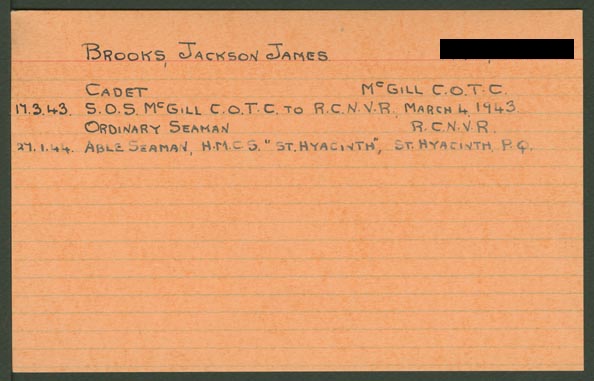 BROOKS, JACKSON JAMES
CADET McGILL C.O.T.C.
17.3.43. S.O.S. McGILL C.O.T.C. TO R.C.N.V.R., MARCH 4, 1943
ORDINARY SEAMAN R.C.N.V.R.
27.1.44. ABLE SEAMAN, H.M.C.S. "ST. HYACINTH", ST. HYACINTH, P.Q.